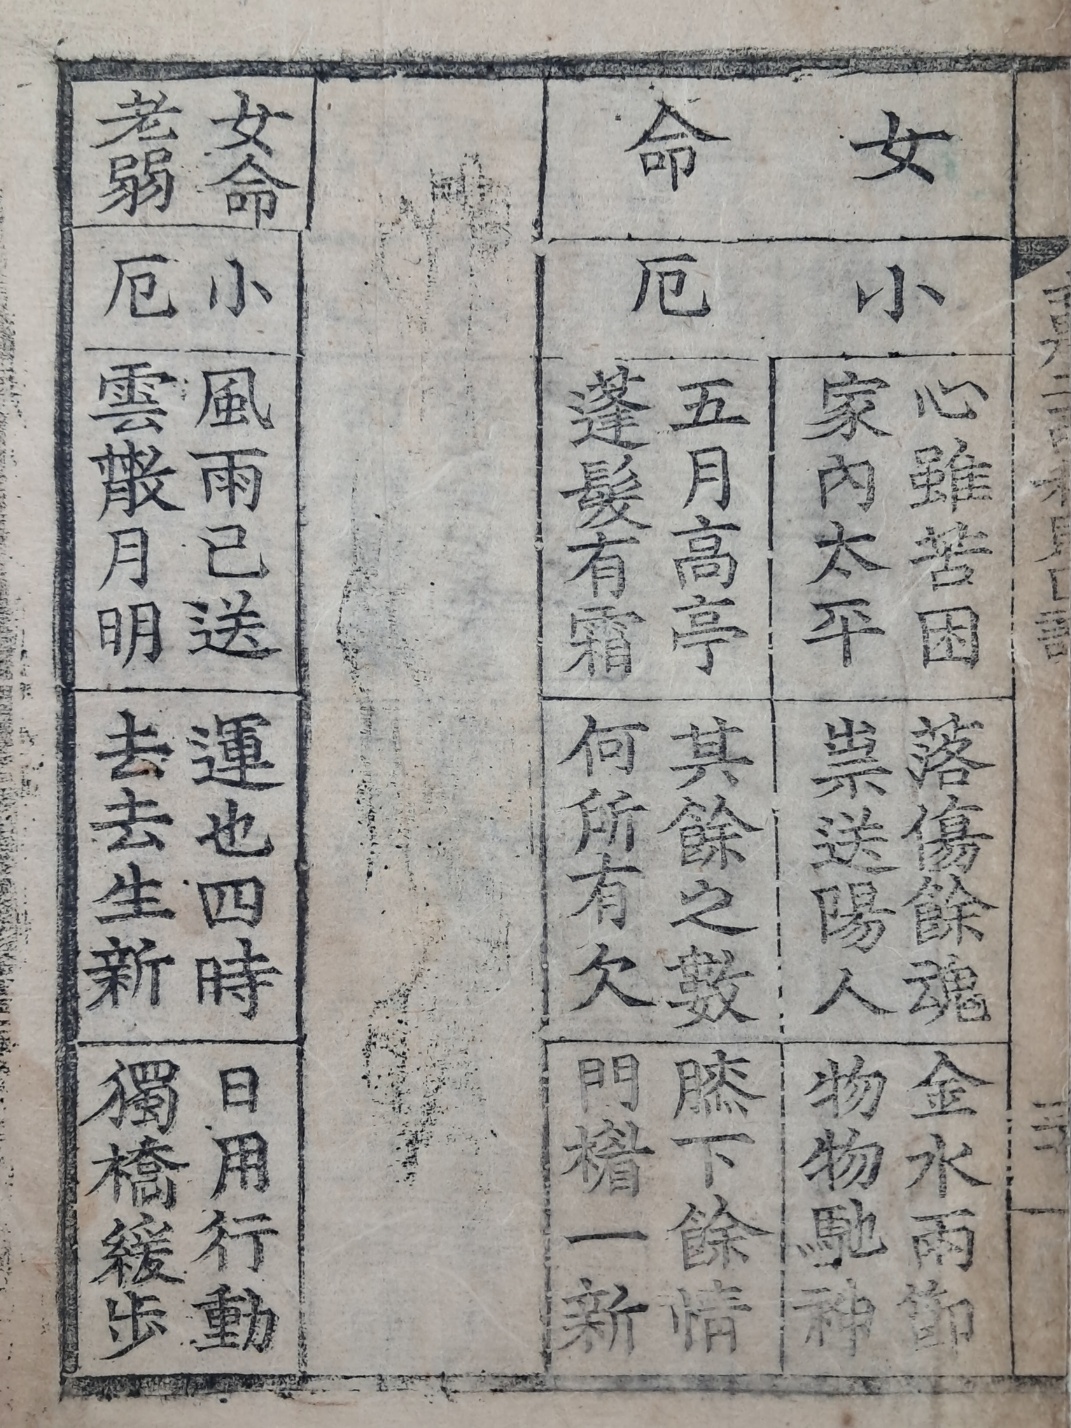 女命
小厄
心雖苦困
家內太平
落傷餘魂
祟送陽人
金水雨節
物物馳神
五月高亭
蓬髮有霜
其餘之數
何所有欠
膝下餘情
門楣一新
女命
老弱
小厄
風雨已送
雲散月明
運也四時
去去生新
日用行動
獨橋緩步